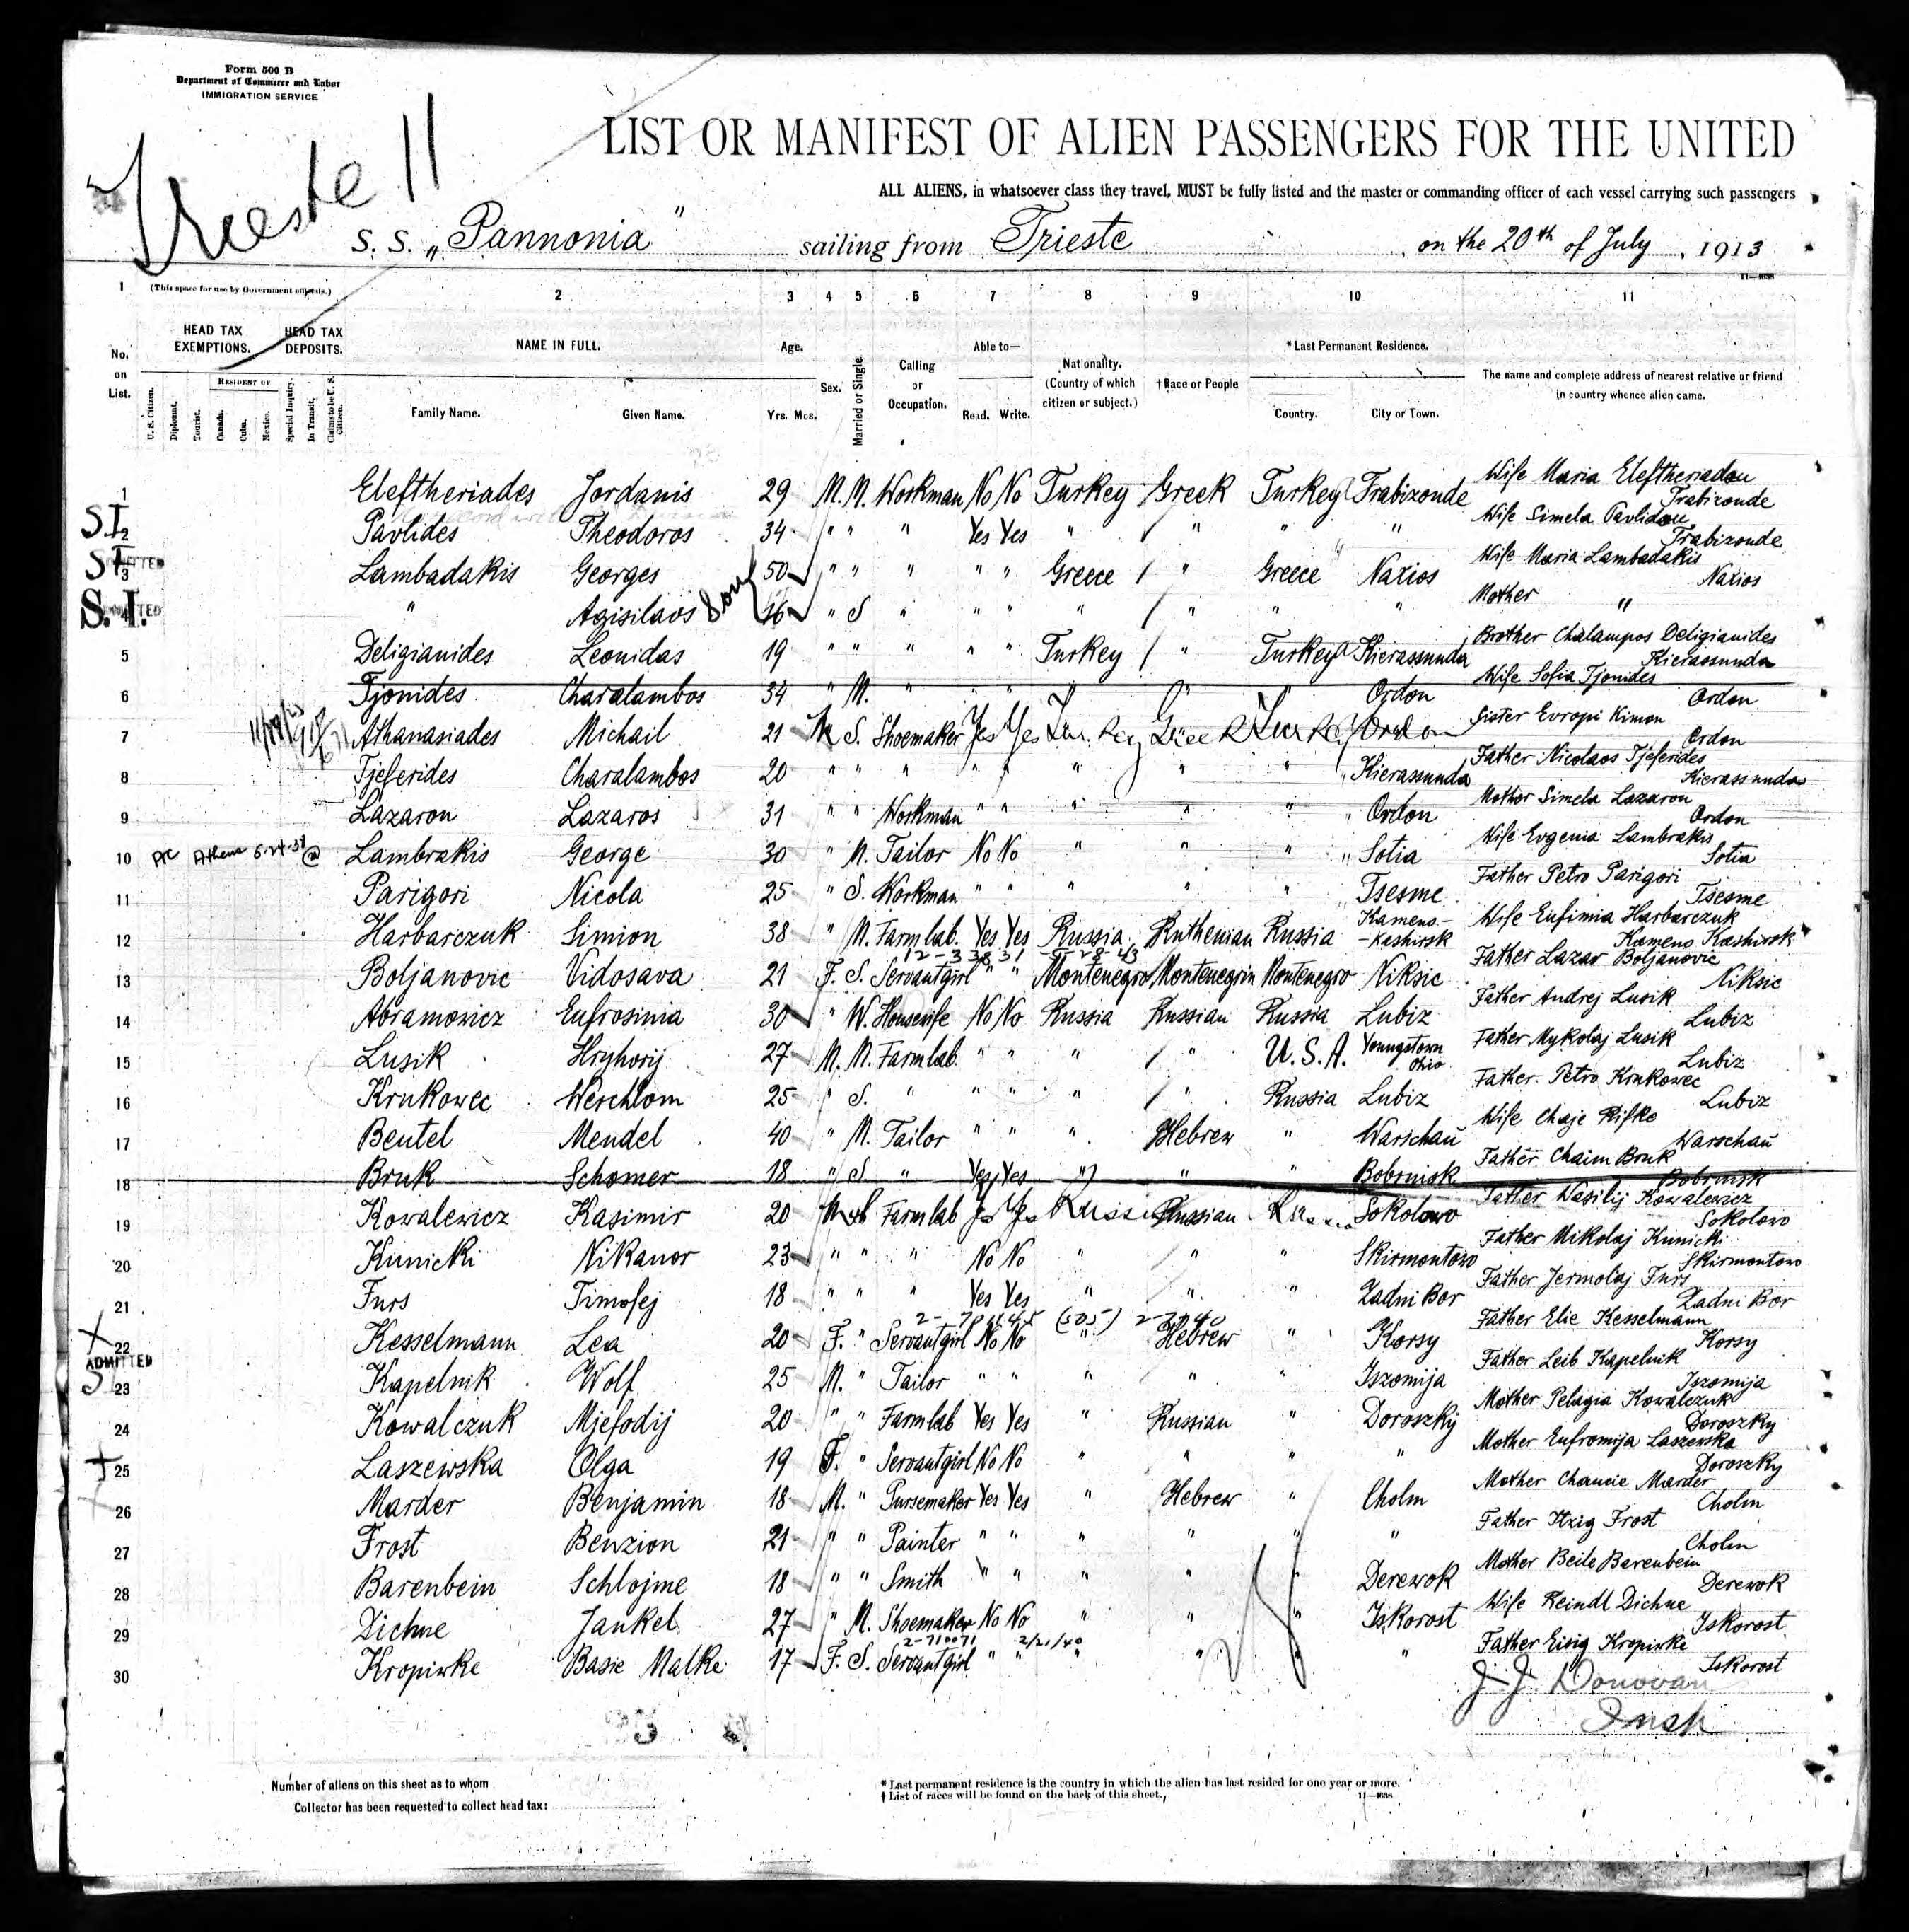 Form 500 B
Department of Commerce and Labor
IMMIGRATION SERVICE
Trieste 11
LIST OR MANIFEST OF ALIEN PASSENGERS FOR THE UNITED
ALL ALIENS, in whatsoever class they travel, MUST be fully listed and the master or commanding officer of each vessel carrying such passengers
S. S. „ Pannonia " sailing from Trieste , on the 20th of July , 1913
11—4638
1 (This space for use by Government officials.) 2 3 4 5 6 7 8 9 10 11
No. on List. HEAD TAX EXEMPTIONS. HEAD TAX DEPOSITS. NAME IN FULL. Age. Sex. Married or Single. Calling or Occupation. Able to— Nationality. (Country of which citizen or subject.) † Race or People * Last Permanent Residence. The name and complete address of nearest relative or friend in country whence alien came.
U. S. Citizen. Diplomat. Tourist. RESIDENT OF Canada. Cuba. Mexico. Special Inquiry. In Transit. Claims to be U. S. Citizen. Family Name. Given Name. Yrs. Mos. Read. Write. Country. City or Town.
1 Eleftheriades Jordanis 29 M. M. Workman No No Turkey Greek Turkey Trabizonde Wife Maria Eleftheriadou Trabizonde
S.I. 2 Pavlides Theodoros 34 " " " Yes Yes " " " " Wife Simela Pavlidou Trabizonde
S.I. ADMITTED 3 Lambadakis Georges 50 " " " " " Greece " Greece Naxios Wife Maria Lambadakis Naxios
S.I. ADMITTED 4 " Agisilaos Son 16 " S " " " " " " " Mother "
5 Deligianides Leonidas 19 " " " " " Turkey " Turkey Kierassunda Brother Chalampos Deligianides Kierassunda
6 Tjonides Charalambos 34 " M. " " " " " " Ordon Wife Sofia Tjonides Ordon
7 Athanasiades Michail 21 M S. Shoemaker Yes Yes Turkey Greek Turkey Ordon Sister Evropi Kimon Ordon
8 Tjeferides Charalambos 20 " " " " " " " " Kierassunda Father Nicolaos Tjeferides Kierassunda
9 Lazaron Lazaros 31 " " Workman " " " " " Ordon Mother Simela Lazaron Ordon
10 Athens 5-24-38 Lambrakis George 30 " M. Tailor No No " " " Sotia Wife Evgenia Lambrakis Sotia
11 Parigori Nicola 25 " S. Workman " " " " " Tsesme Father Petro Parigori Tsesme
12 Harbarczuk Simion 38 " M. Farm lab. Yes Yes Russia Ruthenian Russia Kameno-Kashirsk Wife Eufimia Harbarczuk Kameno Kashirsk
13 Boljanovic Vidosava 21 F. S. Servantgirl " " Montenegro Montenegrin Montenegro Niksic Father Lazar Boljanovic Niksic
14 Abramowicz Eufrosinia 30 " W. Housewife No No Russia Russian Russia Lubiz Father Andrej Lusik Lubiz
15 Lusik Hryhorij 27 M. M. Farmlab. " " " " U. S. A. Youngstown Ohio Father Mykolaj Lusik Lubiz
16 Krukowec Werchlom 25 " S. " " " " " Russia Lubiz Father Petro Krukowec Lubiz
17 Beutel Mendel 40 " M. Tailor " " " Hebrew " Warschau Wife Chaje Rifke Warschau
18 Bruk Schomer 18 " S. " Yes Yes " " " Bobrnisk Father Chaim Bruk Bobrnisk
19 Kowalewicz Kasimir 20 M S Farmlab Yes Yes Russia Russian Russia Sokolowo Father Wasilij Kowalewicz Sokolowo
20 Kunicki Nikanor 23 " " " No No " " " Skirmontowo Father Mikolaj Kunicki Skirmontowo
21 Furs Timofej 18 " " " Yes Yes " " " Zadni Bor Father Jermolaj Furs Zadni Bor
22 Kesselmann Lea 20 F. " Servantgirl No No " Hebrew " Korsy Father Elie Kesselmann Korsy
ADMITTED SI 23 Kapelnik Wolf 25 M. " Tailor " " " " " Iszomija Father Leib Kapelnik Iszomija
24 Kowalczuk Mjefodij 20 " " Farmlab Yes Yes " Russian " Doroszky Mother Pelagia Kowalczuk Doroszky
25 Laszewska Olga 19 F. " Servantgirl No No " " " " Mother Eufromija Laszewska Doroszky
26 Marder Benjamin 18 M. " Pursemaker Yes Yes " Hebrew " Cholm Mother Chancie Marder Cholm
27 Frost Benzion 21 " " Painter " " " " " " Father Itzig Frost Cholm
28 Barenbein Schlojme 18 " " Smith " " " " " Derewok Mother Beile Barenbein Derewok
29 Dichne Jankel 27 " M. Shoemaker No No " " " Iskorost Wife Reindl Dichne Iskorost
30 Kropiwke Basie Malke 17 F. S. Servantgirl " " " " " " Father Eisig Kropiwke Iskorost
2-710071 2/21/40
J. J. Donovan
Insp
Number of aliens on this sheet as to whom
Collector has been requested to collect head tax:
* Last permanent residence is the country in which the alien has last resided for one year or more.
† List of races will be found on the back of this sheet.
11—4638